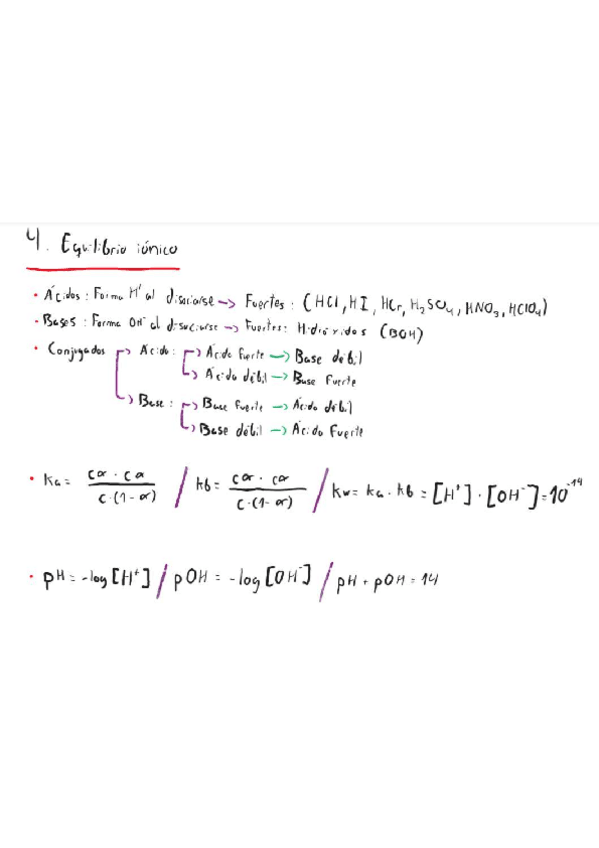 4. Equilibrio iónico
• Ácidos: Forma H⁺ al disociarse → Fuertes: (HCl, HI, HCr, H₂SO₄, HNO₃, HClO₄)
• Bases: Forma OH⁻ al disociarse → Fuertes: Hidróxidos (BOH)
• Conjugados → Ácido: → Ácido fuerte → Base débil
→ Ácido débil → Base Fuerte
→ Base: → Base fuerte → Ácido débil
→ Base débil → Ácido Fuerte
• Ka = cα · cα / c·(1-α) / kb = cα · cα / c·(1-α) / kw = ka · kb = [H⁺] · [OH⁻] = 10⁻¹⁴
• pH = -log [H⁺] / pOH = -log [OH⁻] / pH + pOH = 14